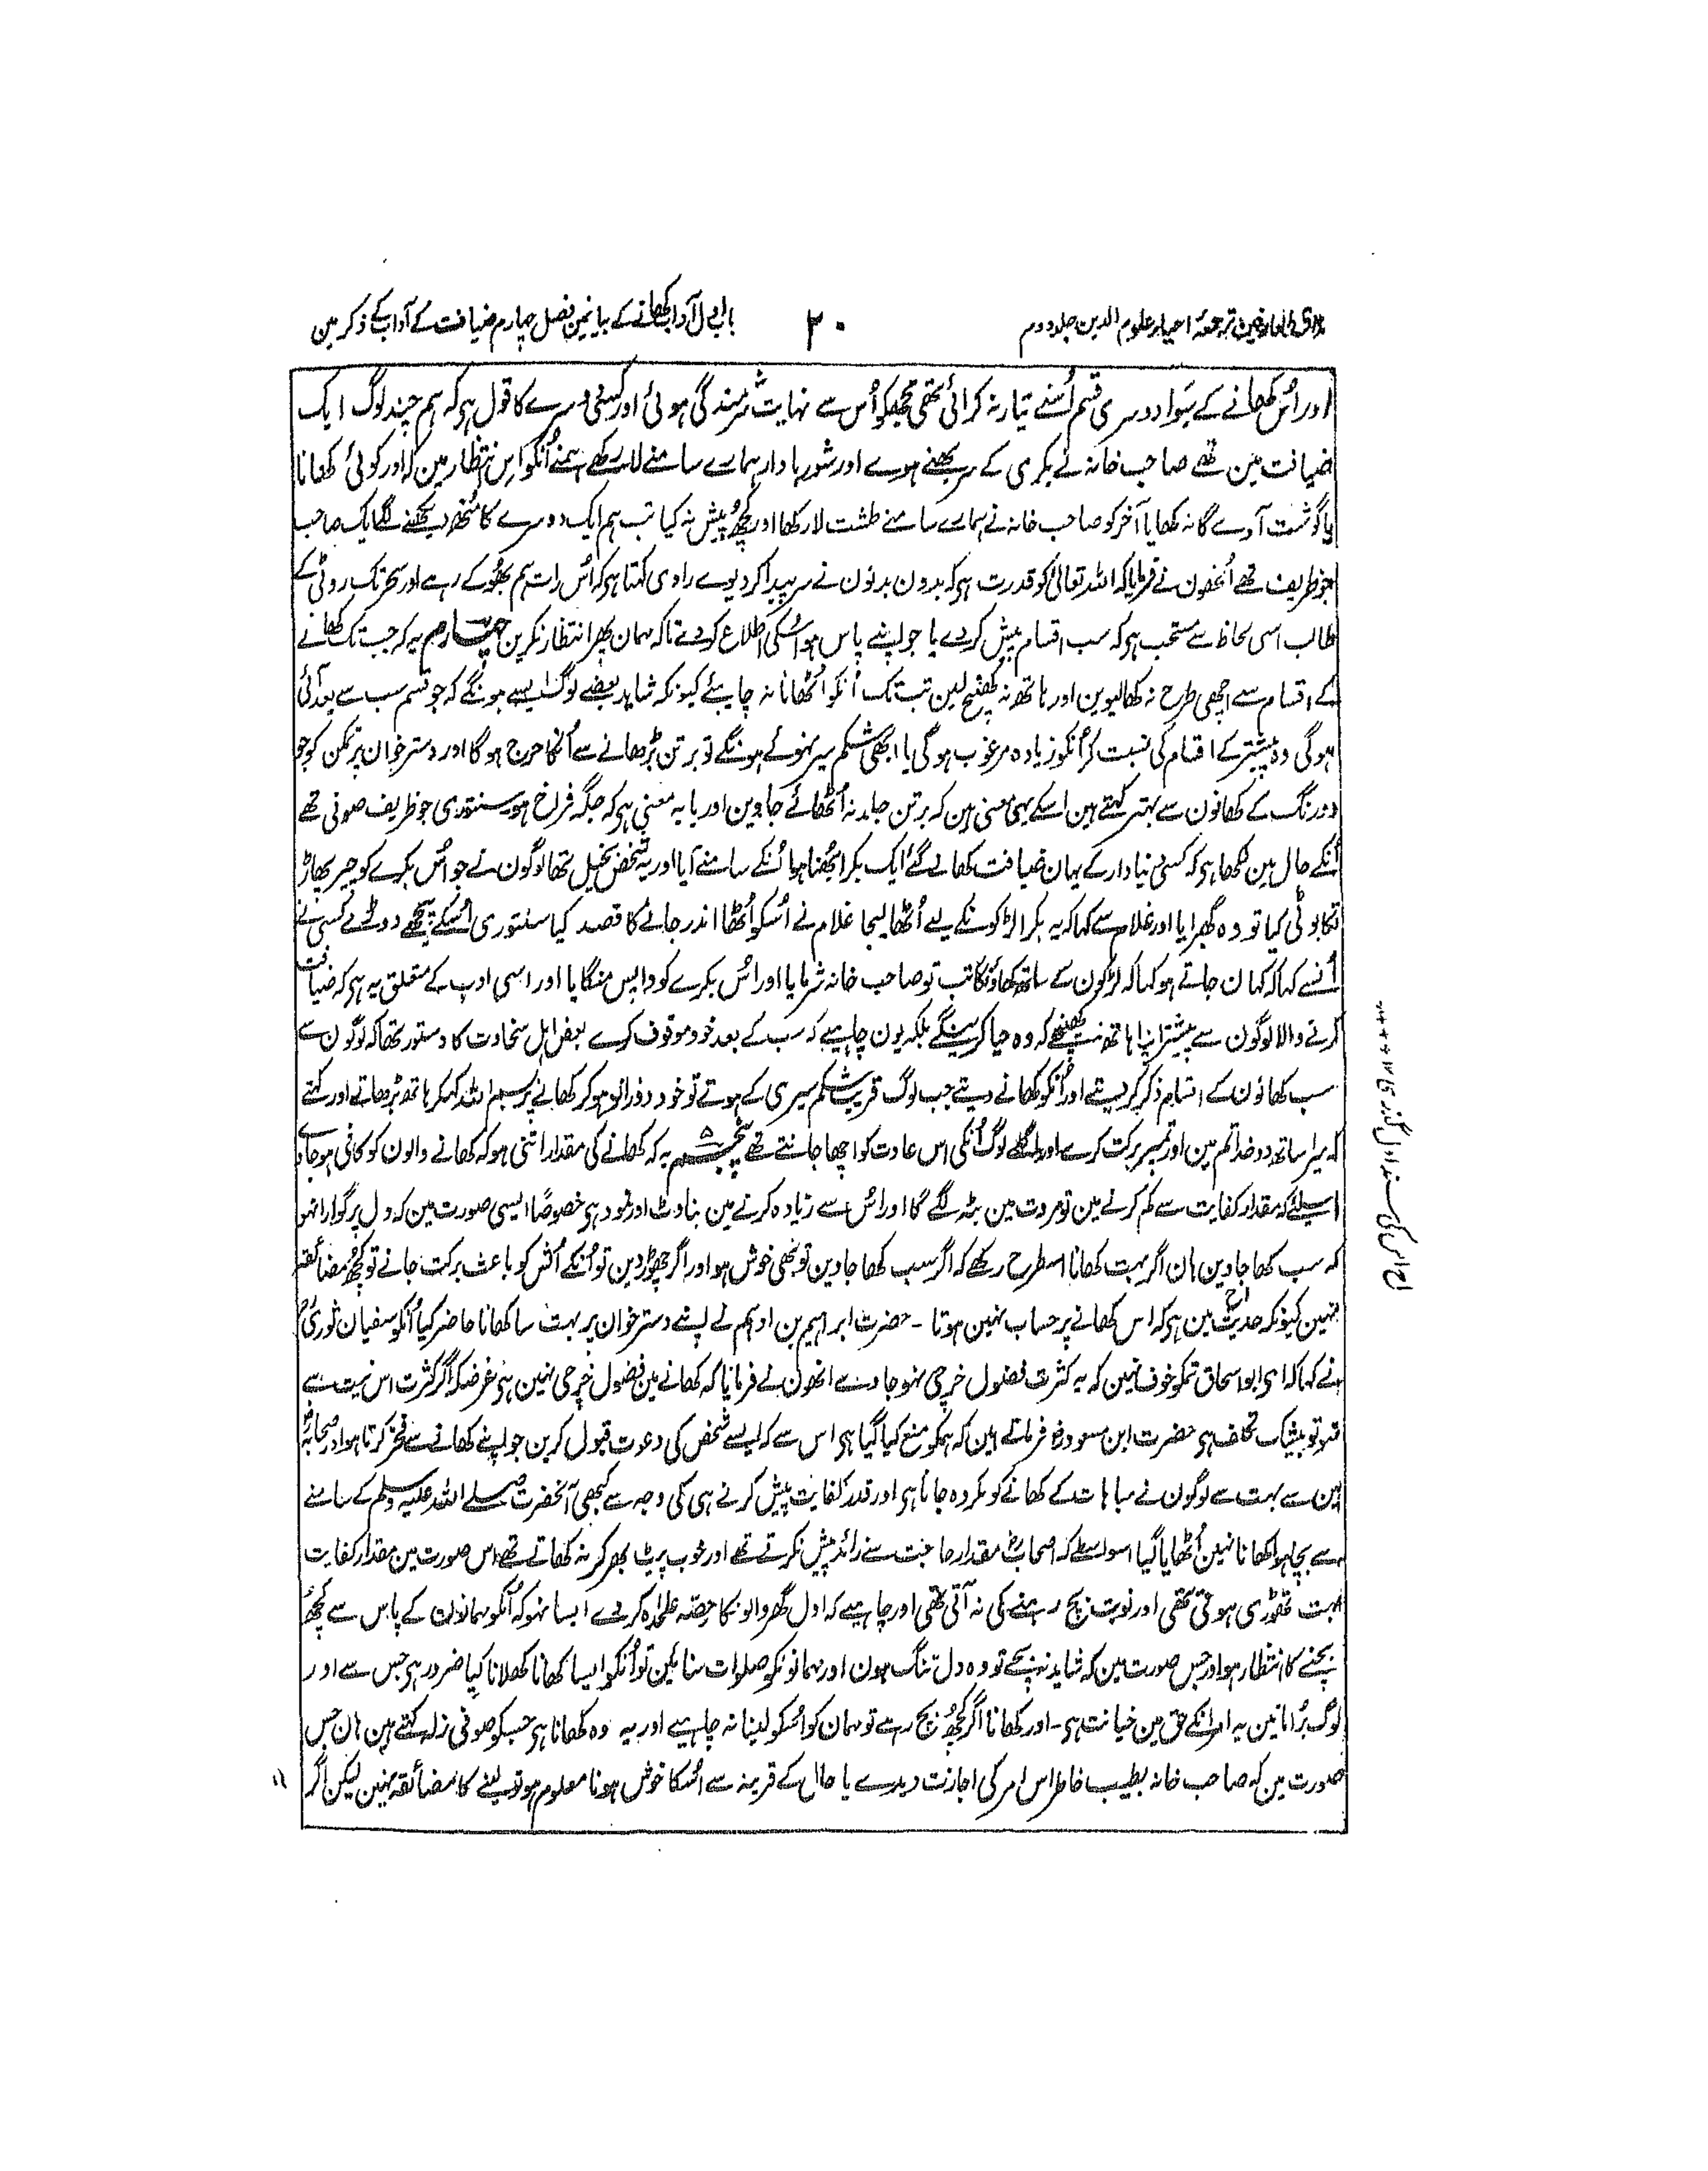 مذاق العارفین ترجمۂ احیاء علوم الدین جلد دوم
۲۰
باب اول آداب کھانے کے بیانمین فصل چہارم ضیافت کے آداب کے ذکر مین
اور اُس کھانے کے سِوا دوسری قسم اُسنے تیار نہ کرائی تھی مجھکو اُس سے نہایت شرمندگی ہوئی اور کسی دوسرے کا قول ہی کہ ہم چند لوگ ایک
ضیافت مین تھے صاحب خانہ نے بکری کے سر بھنے ہوے اور شوربا دار ہمارے سامنے لا رکھے ہمنے اُنکو اِس انتظار مین کہ اور کوئی کھانا
یا گوشت آوے گا نہ کھایا آخر کو صاحب خانہ نے ہمارے سامنے طشت لا رکھا اور کچھ پیش نہ کیا تب ہم ایک دوسرے کا منھ دیکھنے لگے ایک صاحب
جو ظریف تھے اُنھون نے فرمایا کہ اللہ تعالیٰ کو قدرت ہی کہ بدون بدنون نے سر پیدا کر دیوے راوی کہتا ہی کہ اُس رات ہم بھوکے رہے اور سحر تک روٹی کے
طالب اسی لحاظ سے مستحب ہی کہ سب اقسام پیش کردے یا جو اپنے پاس ہو اُسکی اطلاع کردے تاکہ مہمان پھر انتظار نکرین چہارم یہ کہ جب تک کھانے
کے اقسام سے اچھی طرح نہ کھالیوین اور ہاتھ نہ کھینچ لین تب تک اُنکو اُٹھانا نہ چاہیئے کیونکہ شاید بعضے لوگ ایسے ہونگے کہ جو قسم سب سے بعد آئی
ہوگی وہ پیشتر کے اقسام کی نسبت کر اُنکو زیادہ مرغوب ہوگی یا ابھی شکم سیر نہوئے ہونگے تو برتن بڑھانے سے اُنکا حرج ہوگا اور دسترخوان پر تمکن کو جو
دو رنگ کے کھانون سے بہتر کہتے ہین اسکے یہی معنی ہین کہ برتن جلد نہ اُٹھائے جاوین اور یا یہ معنی ہی کہ جگہ فراخ ہو ستوری جو ظریف صوفی تھے
اُنکے حال مین لکھا ہی کہ کسی دنیادار کے یہان ضیافت کھانے گئے ایک بکرا بھنا ہوا اُنکے سامنے آیا اور یہ شخص بخیل تھا لوگون نے جو اُس بکرے کو چیر پھاڑ
تکا بوٹی کیا تو وہ گھبرایا اور غلام سے کہا کہ یہ بکرا لڑکونکے لیے اُٹھا لیجا غلام نے اُسکو اُٹھا اندر جانے کا قصد کیا ستوری اُسکے پیچھے دوڑے کسی نے
اُنسے کہا کہ کہان جاتے ہو کہا کہ لڑکون کے ساتھ کھاؤنگا تب تو صاحب خانہ شرمایا اور اُس بکرے کو واپس منگایا اور اسی ادب کے متعلق یہ ہی کہ ضیافت
کرنے والا لوگون سے پیشتر اپنا ہاتھ نہ کھینچے کہ وہ حیا کرینگے بلکہ یون چاہیے کہ سب کے بعد خود موقوف کرے بعض اہل سخاوت کا دستور تھا کہ لوگون سے
سب کھانون کے اقسام ذکر کر دیتے اور اُنکو کھانے دیتے جب لوگ قریب شکم سیری کے ہوتے تو خود دوزانو ہوکر کھانے پر بسم اللہ کہکر ہاتھ بڑھاتے اور کہتے
کہ میرا ساتھ دو خدا تم مین اور تمپر برکت کرے اور اگلے لوگ اُنکی اس عادت کو اچھا جانتے تھے پنجم یہ کہ کھانے کی مقدار اتنی ہو کہ کھانے والون کو کافی ہوجاوے
اسلئے کہ مقدار کفایت سے کم کرنے مین تو مروت مین بٹہ لگے گا اور اُس سے زیادہ کرنے مین بناوٹ اور نمود ہی خصوصًا ایسی صورت مین کہ دل پر گوارا نہو
کہ سب کھا جاوین ہان اگر بہت کھانا اسطرح رکھے کہ اگر سب کھا جاوین تو بھی خوش ہو اور اگر چھوڑ دین تو اُنکے اُلش کو باعث برکت جانے تو کچھ مضائقہ
نہین کیونکہ حدیث مین ہی کہ اس کھانے پر حساب نہین ہوتا - حضرت ابراہیم بن ادہم نے اپنے دسترخوان پر بہت سا کھانا حاضر کیا اُنکو سفیان ثوریؒ
نے کہا کہ ای ابو اسحاق تمکو خوف نہین کہ یہ کثرت فضول خرچی نہو جاوے انھون نے فرمایا کہ کھانے مین فضول خرچی نہین ہی غرضکہ اگر کثرت اس نیت سے
نہو تو بیشک تکلف ہی حضرت ابن مسعودؓ فرماتے ہین کہ ہمکو منع کیا گیا ہی اس سے کہ ایسے شخص کی دعوت قبول کرین جو اپنے کھانے سے فخر کرتا ہو اور صحابہؓ
مین سے بہت سے لوگون نے مباہات کے کھانے کو مکروہ جانا ہی اور قدر کفایت پیش کرنے ہی کی وجہ سے کبھی آنحضرت صلے اللہ علیہ وسلم کے سامنے
سے بچا ہوا کھانا نہین اُٹھایا گیا اسواسطے کہ اصحابؓ مقدار حاجت سے زائد پیش نکرتے تھے اور خوب پیٹ بھر کر نہ کھاتے تھے اس صورت مین مقدار کفایت
بہت تھوڑی ہوتی تھی اور نوبت بچ رہنے کی نہ آتی تھی اور چاہیے کہ اول گھر والونکا حصہ علٰحدہ کردے ایسا نہو کہ اُنکو مہمانون کے پاس سے کچھ
بچنے کا انتظار ہو اور جس صورت مین کہ شاید نہ بچے تو وہ دل تنگ ہون اور مہمانونکو صلوات سنائین تو اُنکو ایسا کھانا کھلانا کیا ضرور ہی جس سے اور
لوگ بُرا مانین یہ امر اُنکے حق مین خیانت ہی - اور کھانا اگر کچھ بچ رہے تو مہمان کو اُسکو لینا نہ چاہیے اور یہ وہ کھانا ہی جسکو صوفی زلہ کہتے ہین ہان جس
صورت مین کہ صاحب خانہ بطیب خاطر اس امر کی اجازت دیدے یا حال کے قرینہ سے اُسکا خوش ہونا معلوم ہو تو لینے کا مضائقہ نہین لیکن اگر